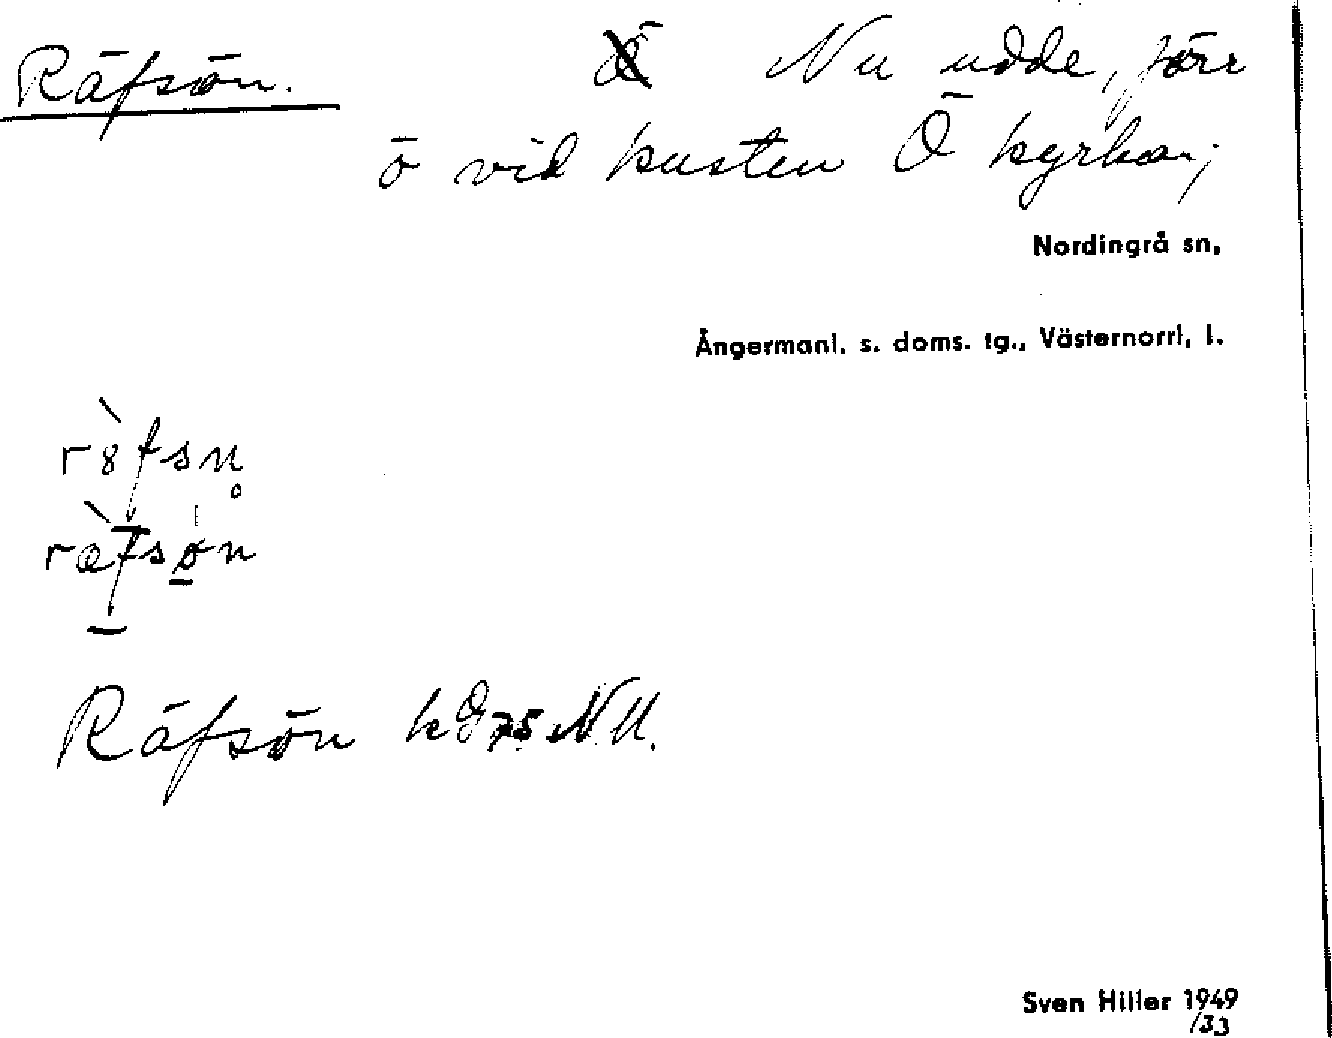 Räfsön. Nu udde, förr
ö vid kusten Ö kyrkan;
Nordingrå sn,
Ångermanl. s. doms. tg., Västernorrl. l.
rȯ̀fsn̥
ræ̀fsøn
Räfsön k 75 N.U.
Sven Hiller 1949
/33